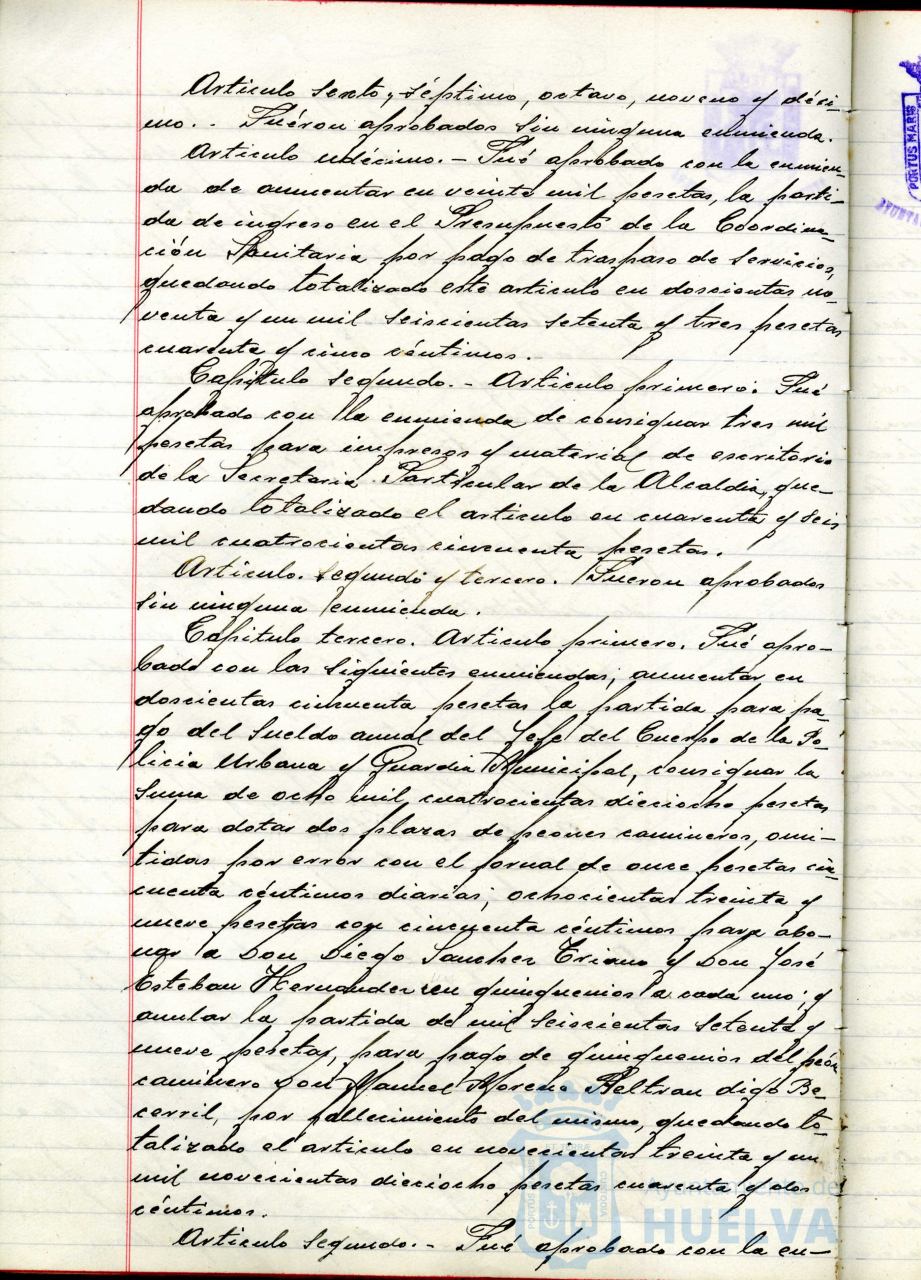 Articulo sexto, séptimo, octavo, noveno y déci-
mo. - Fuéron aprobados sin ninguna enmienda.
Articulo undécimo. - Fué aprobado con la enmien-
da de aumentar en veinte mil pesetas, la parti-
da de ingreso en el Presupuesto de la Coordina-
ción Sanitaria por pago de traspaso de servicios,
quedando totalizado este articulo en doscientas no-
venta y un mil seiscientas setenta y tres pesetas
cuarenta y cinco céntimos.
Capitulo segundo. - Articulo primero: Fué
aprobado con la enmienda de consignar tres mil
pesetas para impresos y material de escritorio
de la Secretaria Particular de la Alcaldia, que-
dando totalizado el articulo en cuarenta y seis
mil cuatrocientas cincuenta pesetas.
Articulo segundo y tercero. Fueron aprobados
sin ninguna enmienda.
Capitulo tercero. Articulo primero. Fué apro-
bado con las siguientes enmiendas; aumentar en
doscientas cincuenta pesetas la partida para pa-
go del sueldo anual del Jefe del Cuerpo de la Po-
licia Urbana y Guardia Municipal, consignar la
suma de ocho mil cuatrocientas dieciocho pesetas
para dotar dos plazas de peones camineros, omi-
tidas por error con el jornal de once pesetas cin-
cuenta céntimos diarias; ochocientas treinta y
nueve pesetas con cincuenta céntimos para abo-
nar a Don Diego Sanchez Triano y Don José
Esteban Hernandez en quinquenios a cada uno; y
anular la partida de mil seiscientas setenta y
nueve pesetas, para pago de quinquenios del peón
caminero Don Manuel Moreno Beltran digo Be-
cerril, por fallecimiento del mismo, quedando to-
talizado el articulo en novecientas treinta y un
mil novecientas dieciocho pesetas cuarenta y dos
céntimos.
Articulo segundo. - Fué aprobado con la en-
PORTUS MARIS
Ayuntamiento de
HUELVA